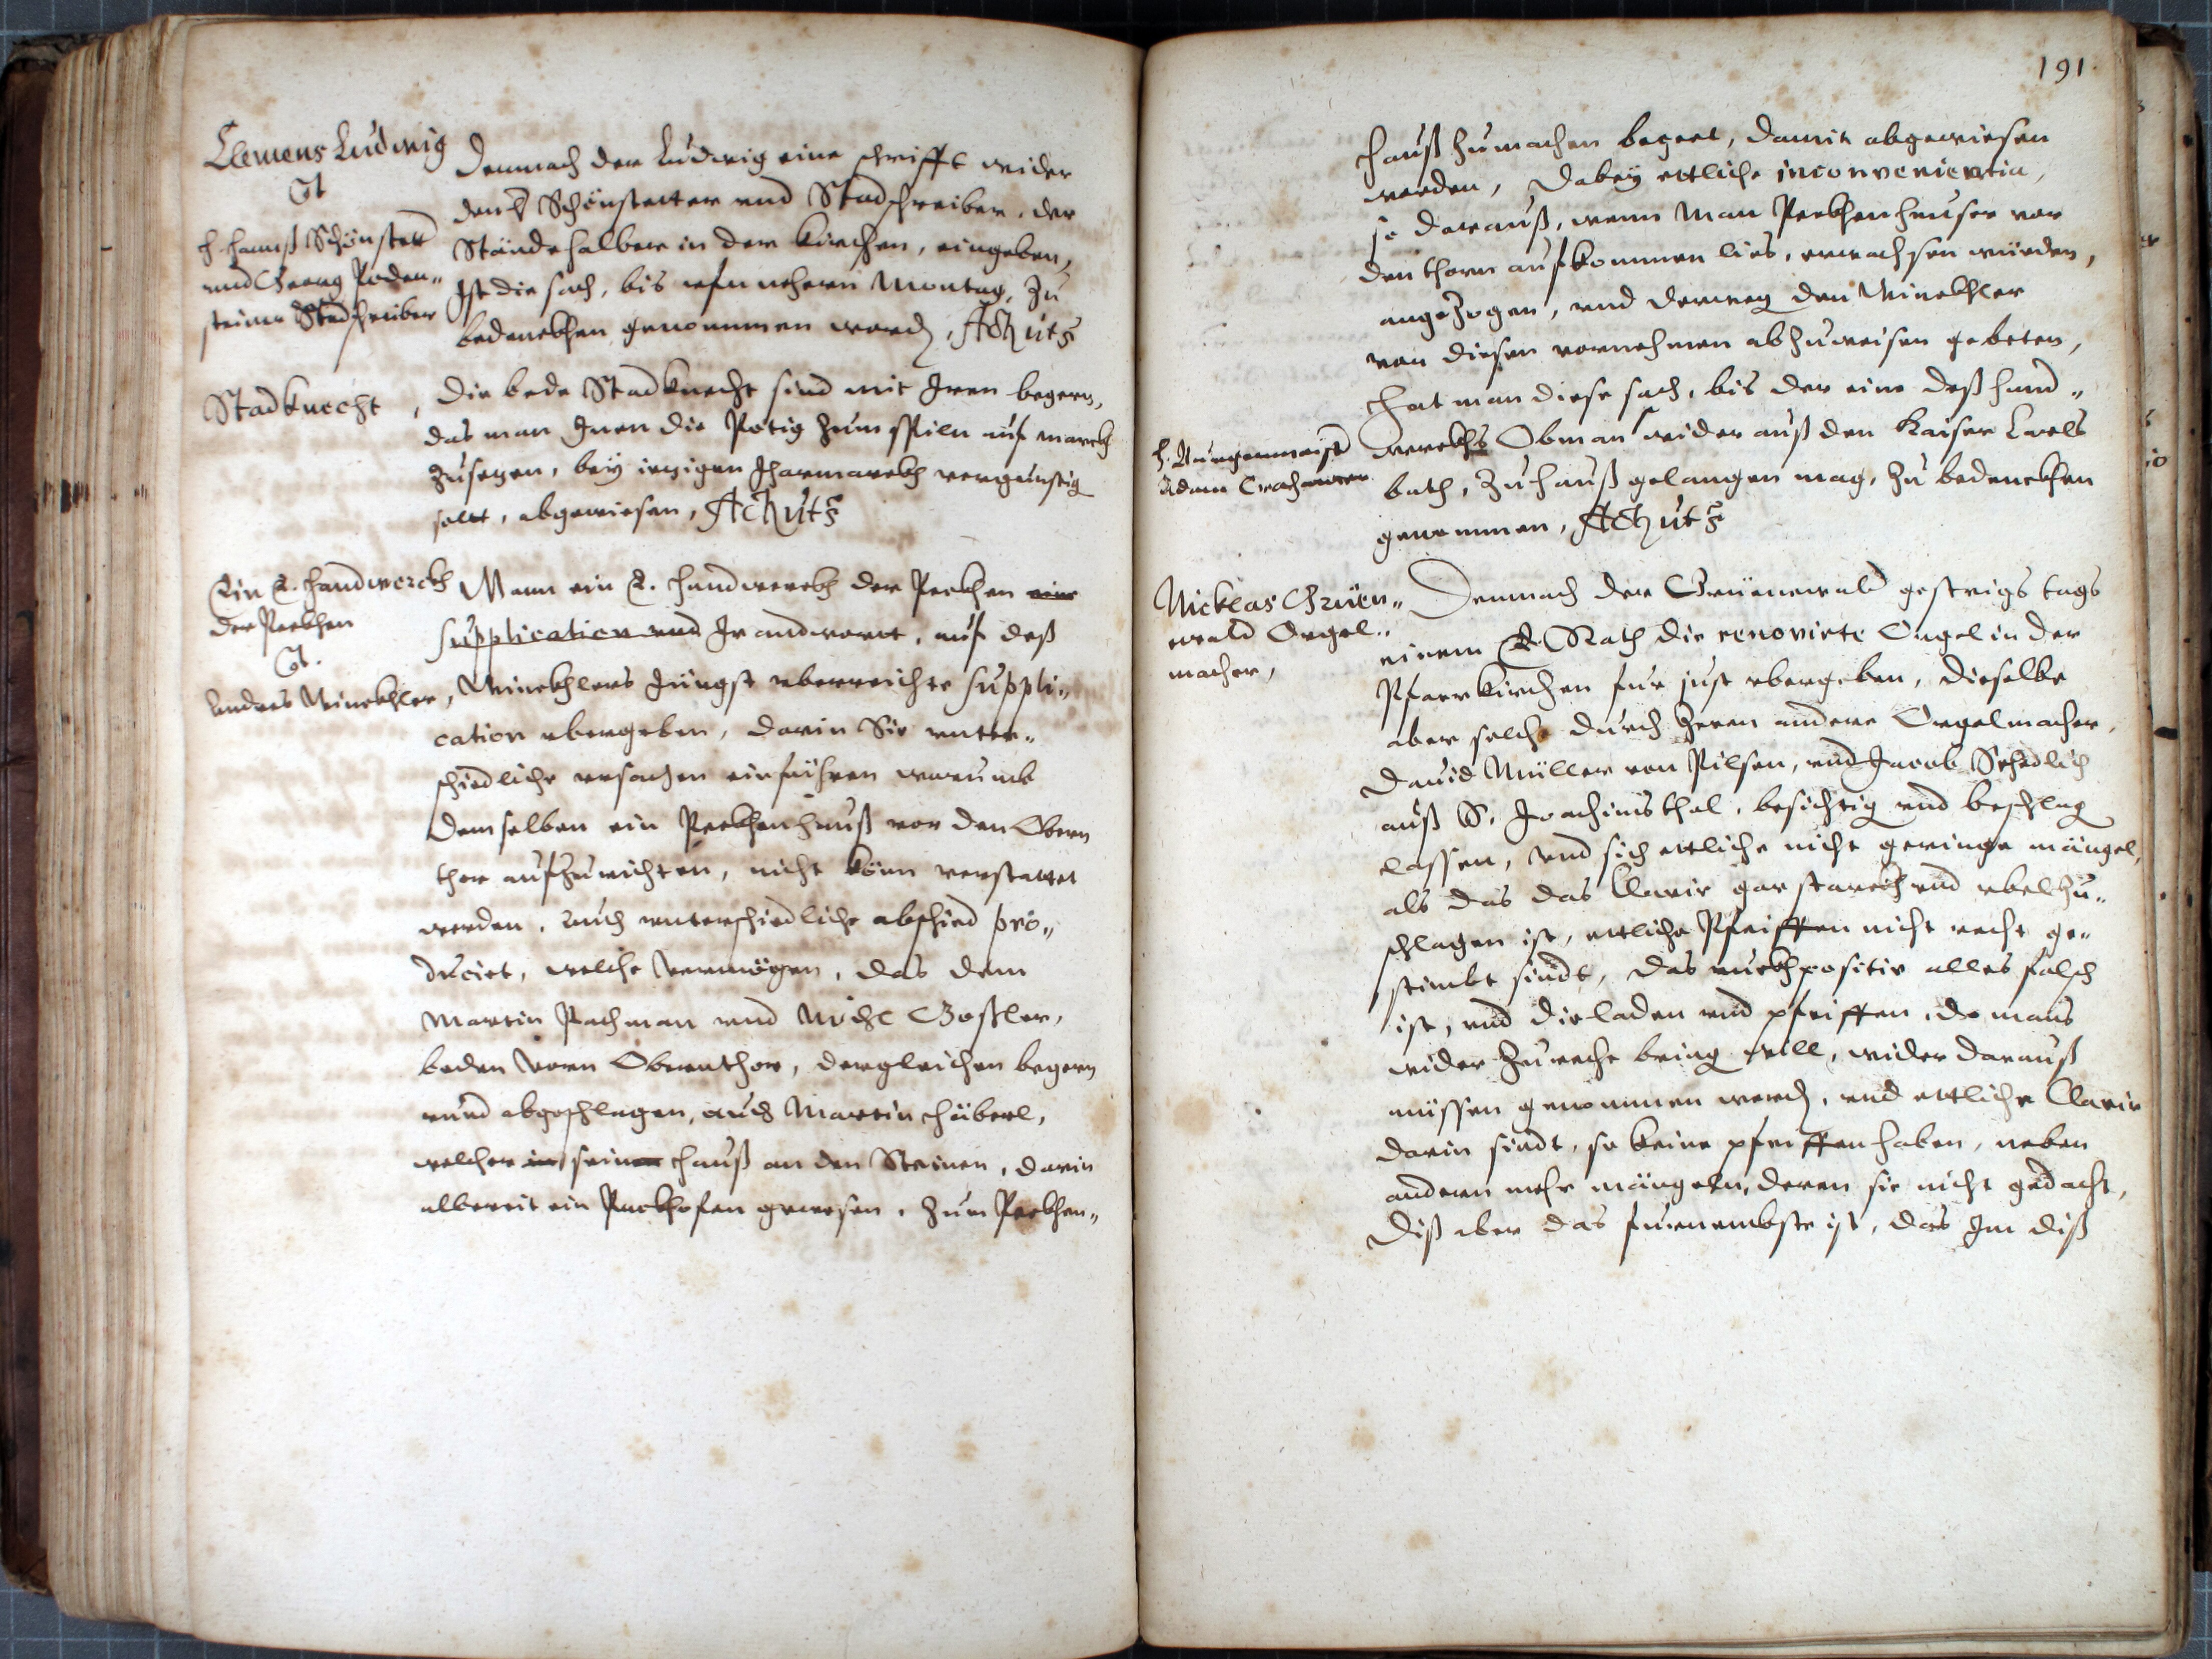 Clemens Ludwig
Ct
H. Hannß Schönstett
und Georg Peden„
steiner Stadschreiber
Demnach der Ludwig eine schrifft wider
den H. Schönstetter und Stadschreiber, der
Stände halber in der Kirchen, eingeben,
Ist die sach, bis ufm nehern Montag, zu
bedenckhen genommen word, Actuts
Stadknecht,
Die bede Stadknecht sind mit Iren begern,
das man Inen die Potig zum spiln auf march
zusezen, bey iezigen Jharmarckh vergunstig
solt, abgewiesen, Actuts
Ein E. Handwerckh
der Peckhen
Ct.
Andres Winckhler,
Wann ein E. Handwerckh der Peckhen eine
supplication und Ir andwort, auf deß
Winckhlers Jüngst uberreichte suppli„
cation ubergeben, darin Sie unter„
schiedliche ursachen einführen warumb
demselben ein Peckhenhauß vor den Obern
thor aufzurichten, nicht könn verstattet
werden, auch unterschiedliche abschied pro„
ducirt, welche vermögen, das dem
Martin Pachman und Michl Goßler,
beden vorn Obernthor, dergleichen begern
rund abgeschlagen, auch Martin Häberl,
welcher in seinem Hauß an den Steinen, darin
albereit ein Packhofen gewesen, zum Peckhen„
191.
Hauß zumachen begert, damit abgewiesen
worden, Dabey ettliche inconvenientia,
so darauß, wenn man Peckhenheuser vor
den thorn aufkommen lies, erwachsen würden,
angezogen, und derweg den Winckhler
von diesen vornehmen abzuweisen gebeten,
Hat man diese sach, bis der eine deß hand„
werckhs Obman wider auß den Kaiser Carls
bath, zu hauß gelangen mag, zu bedenckhen
genommen, Actuts
H. Burgermaist
Adam Crahmer
Nicklas Grüen„
wald Orgel„
macher,
Demnach der Grüenewald gestrigs tags
einem E. Rath die renovirte Orgel in der
Pfarrkirchen fur just ubergeben, dieselbe
aber solche durch zween andere Orgelmacher,
David Müller von Pilsen, und Jacob Schedlich
auß S. Joachimsthal, besichtig und beschlag
lassen, und sich ettliche nicht geringe mängel,
als das das Clavir gar starckh und ubel zu„
schlagen ist, ettliche Pfeiffen nicht recht ge„
stimbt sindt, das ruckhpositiv alles falsch
ist, und die laden und pfeiffen, do mans
wider zurecht bring will, wider darauß
müssen genommen werd, und ettliche Clavir
darin sindt, so keine pfeiffen haben, neben
andern mehr mängeln, deren sie nicht gedacht,
diß aber das furnembste ist, das Im diß